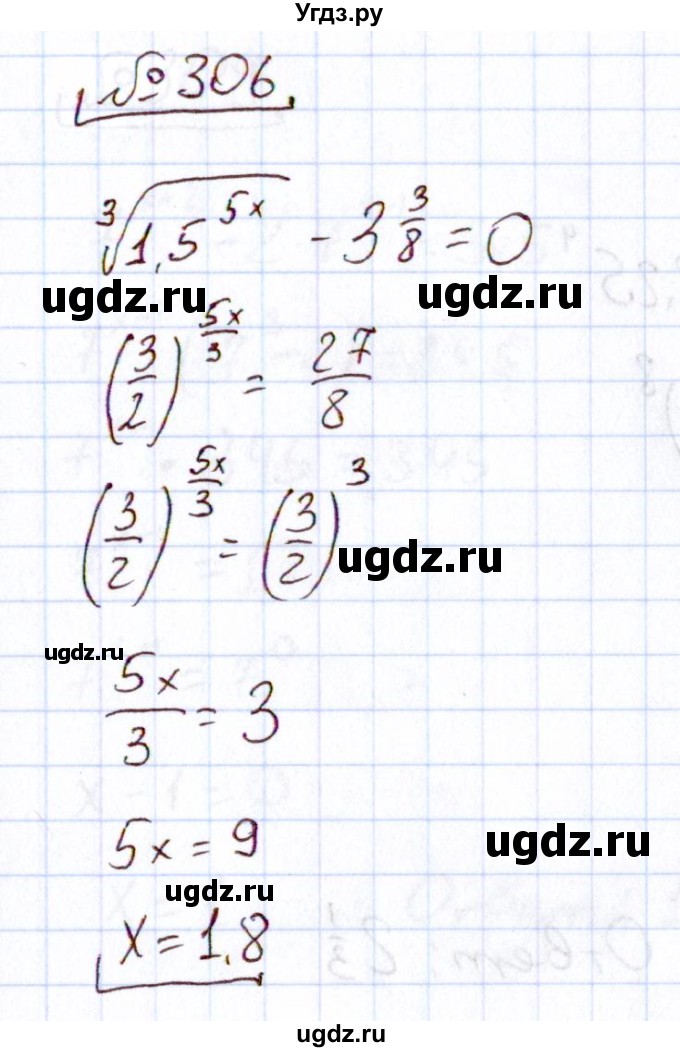 Угдз.ру
№306
∛(1,5^(5x)) - 3 3/8 = 0
ugdz.ru ugdz.ru
(3/2)^(5x/3) = 27/8
(3/2)^(5x/3) = (3/2)^3
ugdz.ru
ugdz.ru
5x/3 = 3
5x = 9
ugdz.ru
ugdz.ru
x = 1,8
ugdz.ru